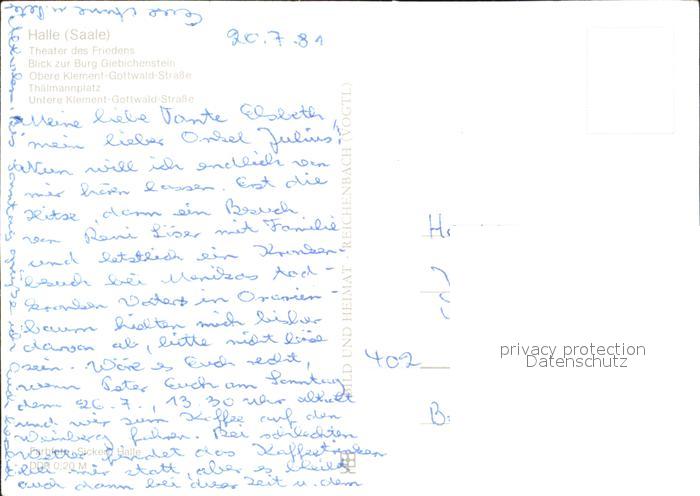 20.7.81
Halle (Saale)
Theater des Friedens
Blick zur Burg Giebichenstein
Obere Klement-Gottwald-Straße
Thälmannplatz
Untere Klement-Gottwald-Straße
Meine liebe Tante Elsbeth,
mein lieber Onkel Julius!
Nun will ich endlich von
mir hören lassen. Erst die
Hitze, dann ein Besuch
von René Löser mit Familie
und letztlich ein Kranken-
besuch bei Monikas tod-
kranken Vater in Oranien-
baum hielten mich bisher
davon ab, bitte nicht böse
sein. Wäre es Euch recht,
wenn Peter Euch am Sonntag
dem 26.7., 13.30 Uhr abholt
und wir zum Kaffee auf den
Weinberg fahren. Bei schlechten
Wetter findet das Kaffeetrinken
bei mir statt, aber es bleibt
auch dann bei dieser Zeit u. dem
Halle
DDR 0,20 M
BILD UND HEIMAT REICHENBACH (VOGTL)
402
privacy protection
Datenschutz